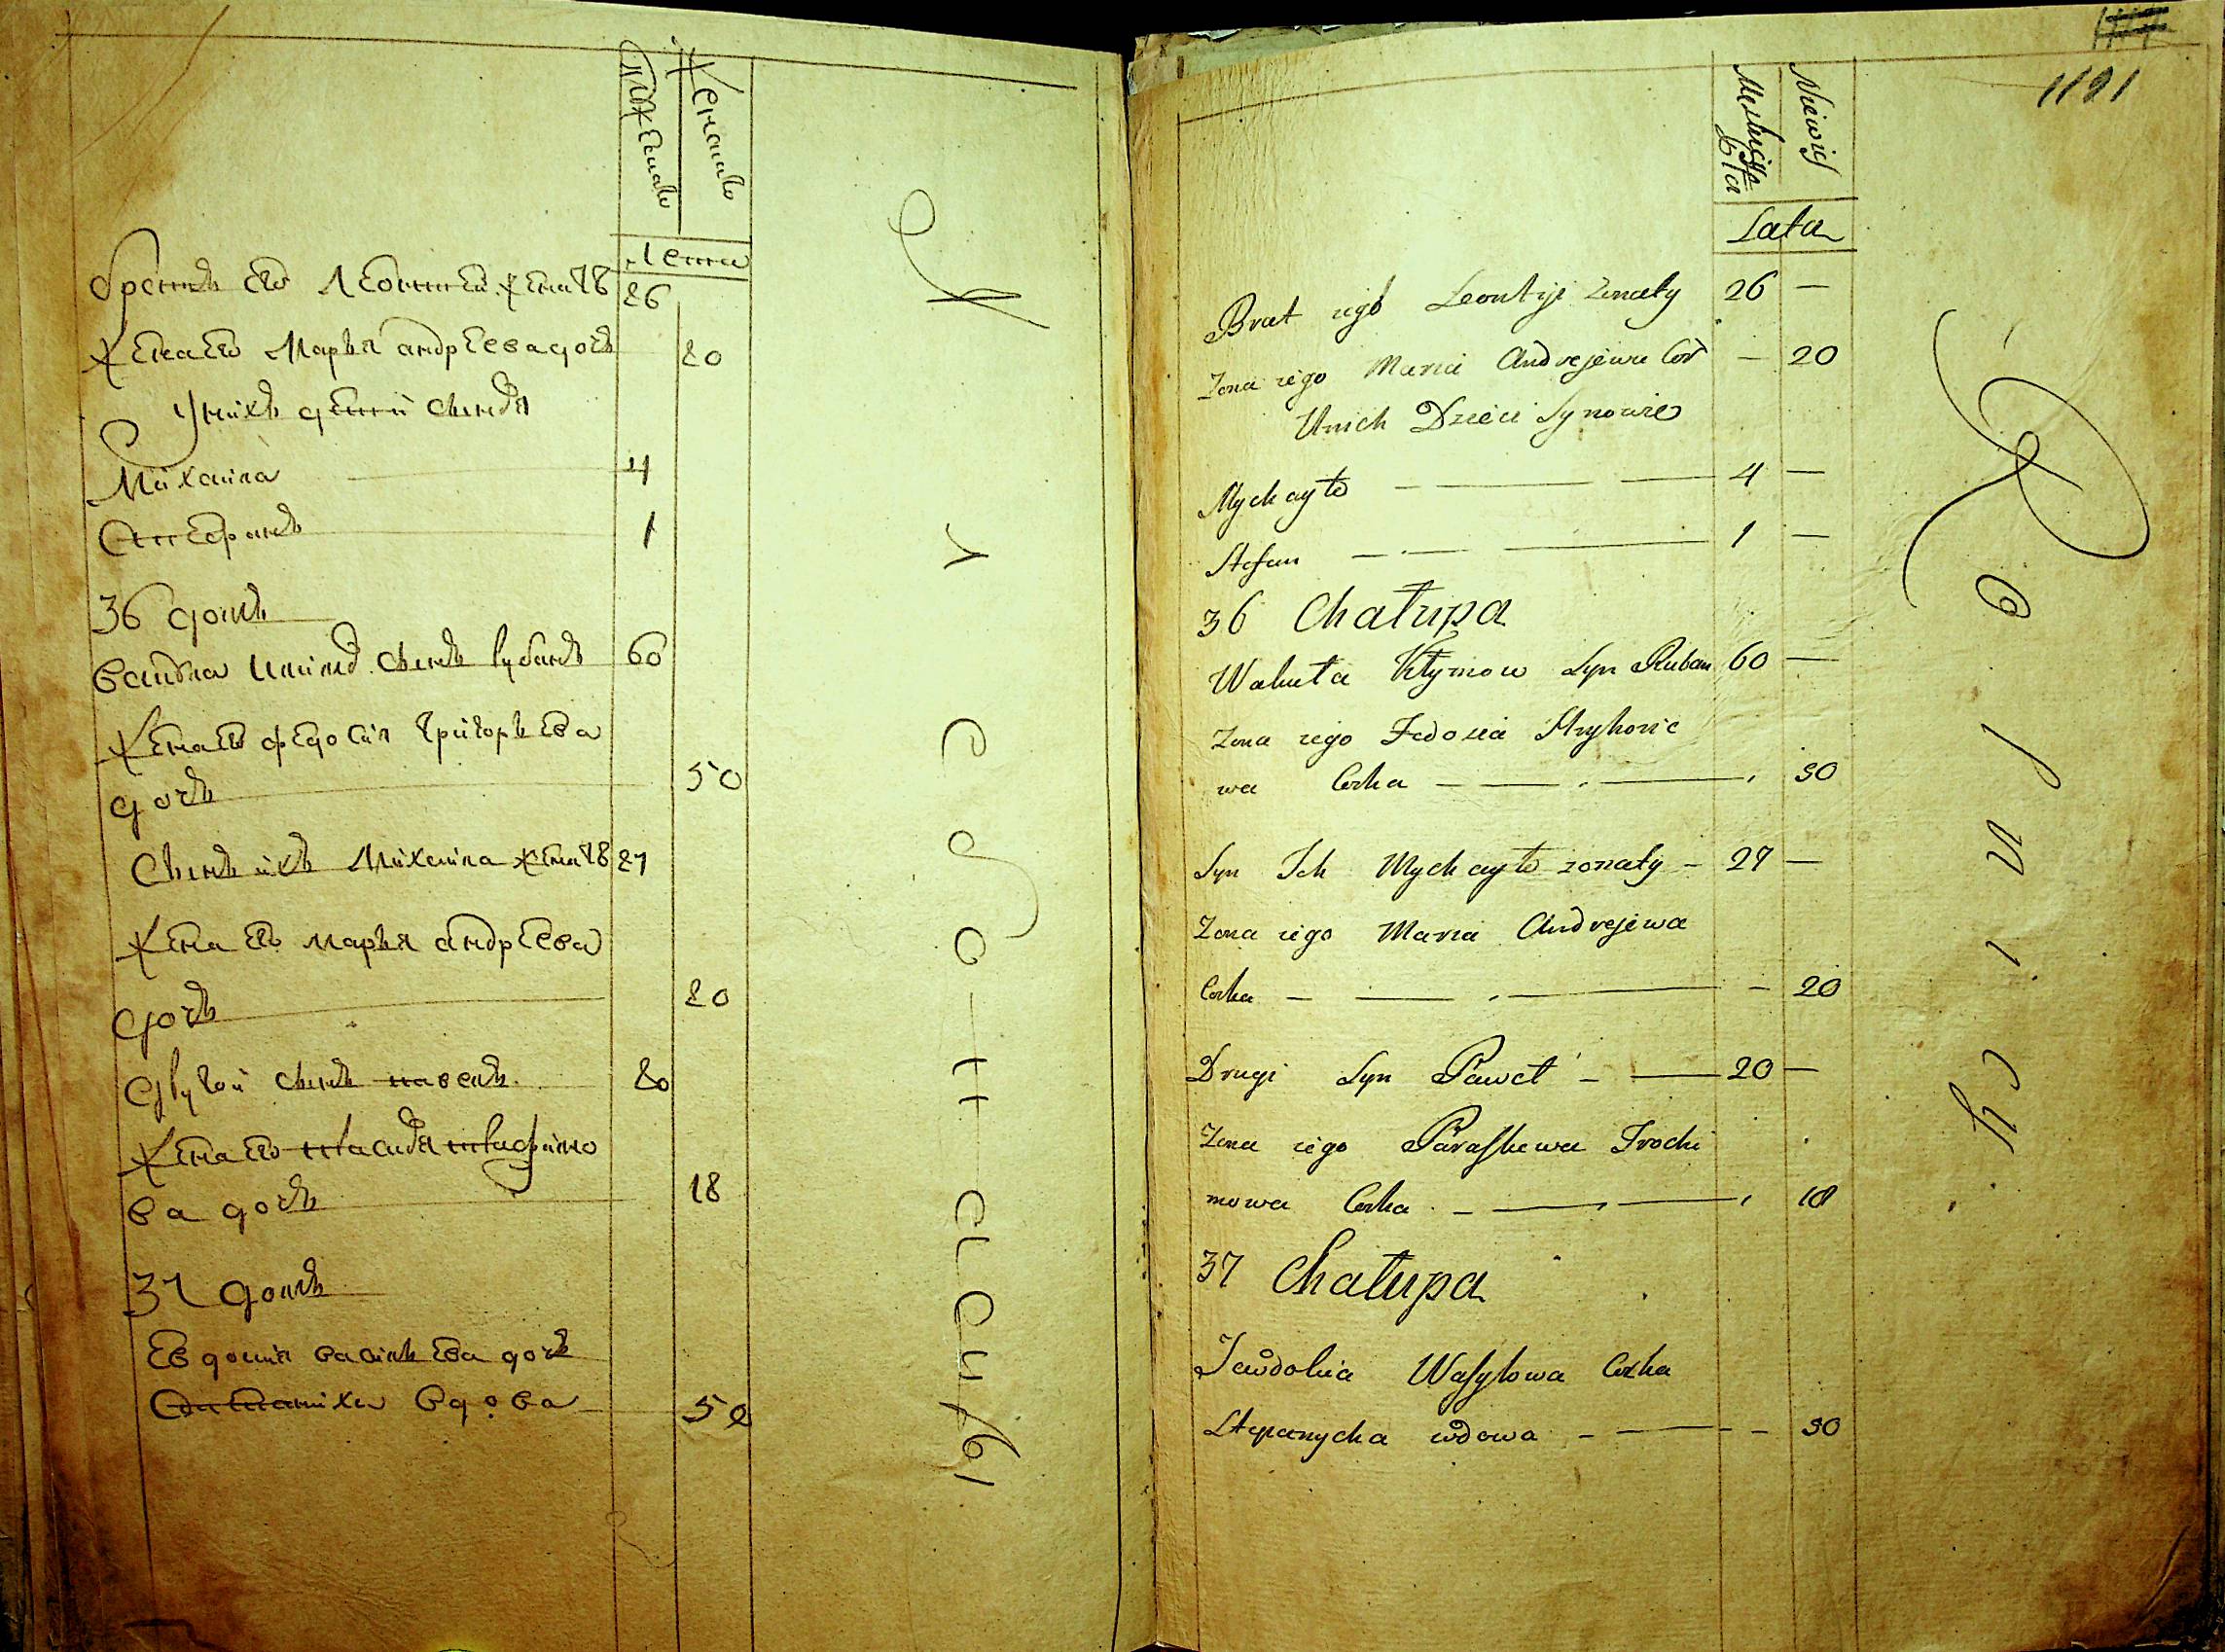 Мужеска
Женска
Лета
братъ его Леонтей женатъ 26
Жена его Марья андреева дочь 20
Унихъ детей сыновя
Михаила 4
Стефанъ 1
36 домъ
Вакула климов сынъ рубанъ 60
Жена его федосия григорьева
дочь 50
Сынъ ихъ Михаила женатъ 27
Жена его марья андреева
дочь 20
другой сынъ павелъ 20
Жена его
ва дочь 18
37 домъ
Евдокия васильева дочь
вдова 50
1191
Lata
Brat iego Leontyi Zonaty 26 —
Zona iego Maria Andrejewa Cór — 20
Unich Dzieci Synowie
Mychayło — 4 —
Stefan — 1 —
36 Chałupa
Wakuła Kłymow Syn Ruban 60 —
Zona iego Fedosia Hryhorie
wa Corka — 50
Syn Ich Mychayło zonaty — 27 —
Zona iego Maria Andrejewa
Corka — 20
Drugi Syn Paweł — 20 —
Zona iego Paraskewa Trochi
mowa Corka — 18
37 Chałupa
Jewdokia Wasylowa Corka
Stepanycha wdowa — 50